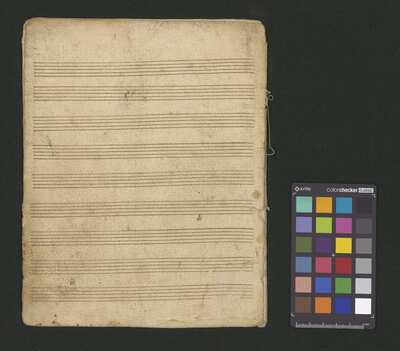 x-rite
colorchecker CLASSIC